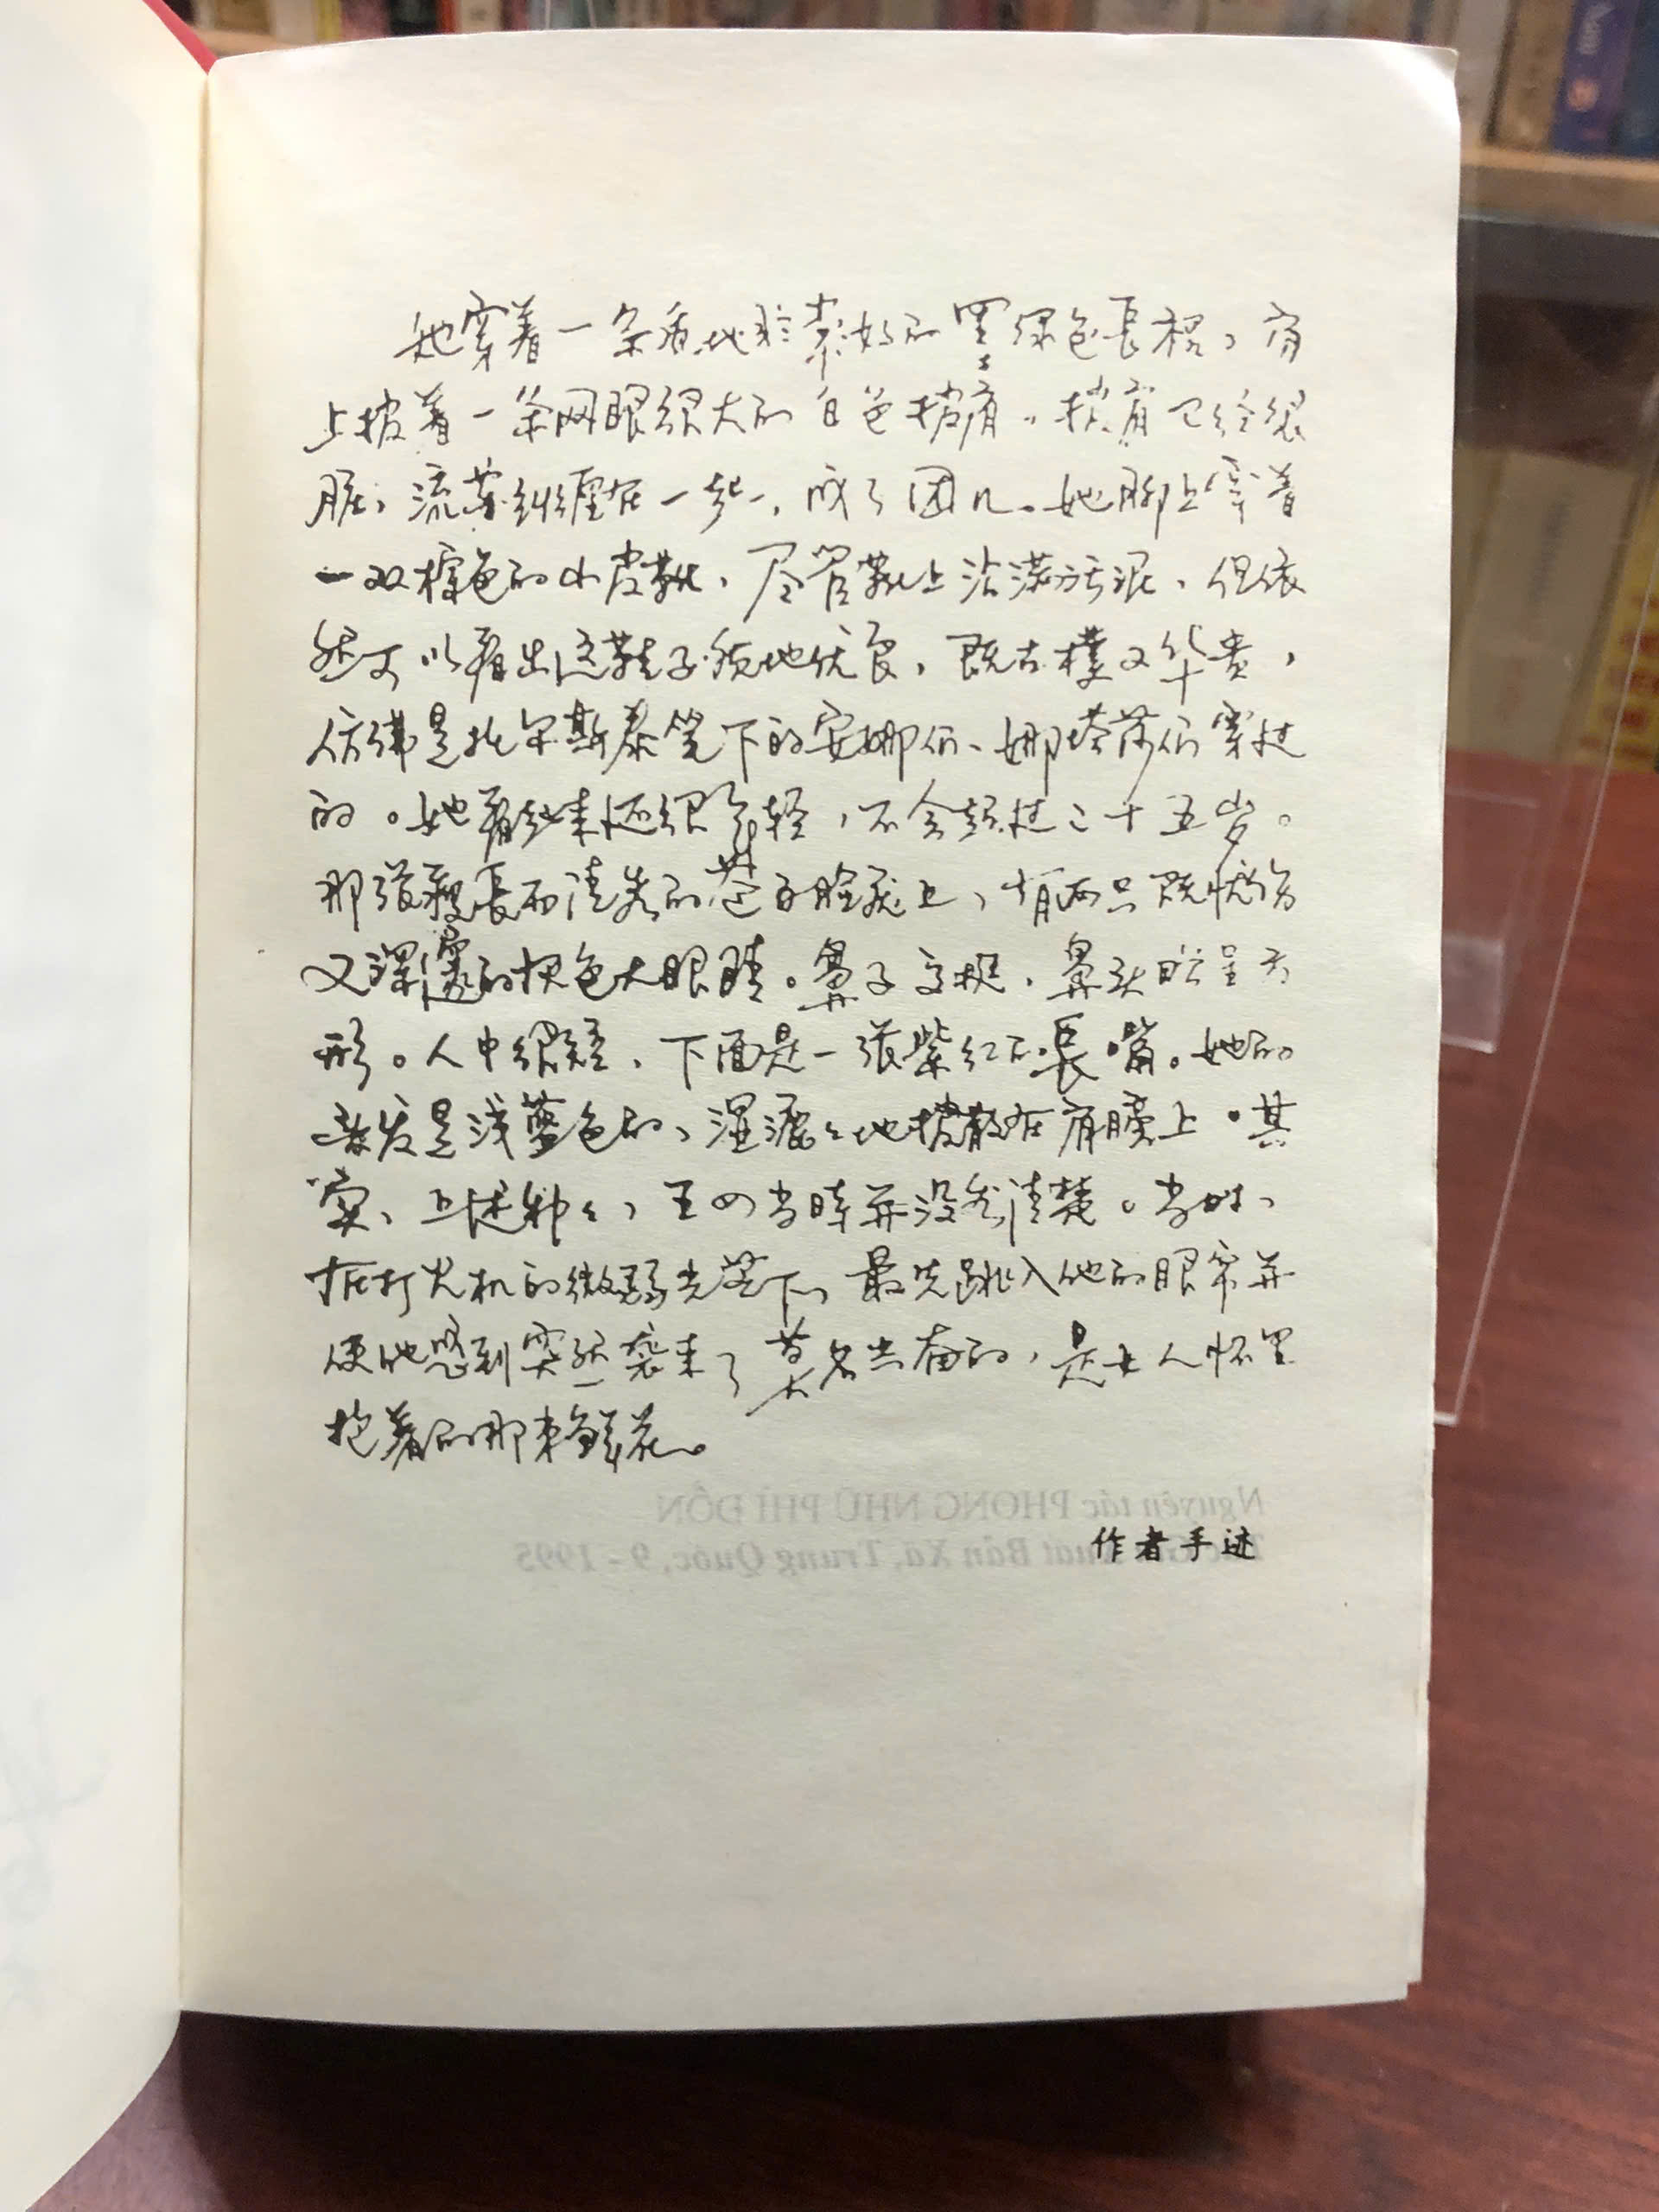 她穿着一条质地非常好的墨绿色長裙，肩
上披着一条网眼很大的白色披肩。披肩已经很
脏，流苏纠缠在一起，成了团儿。她脚上穿着
一双棕色的小皮靴，尽管靴上沾满污泥，但依
然可以看出这鞋子质地优良，既古樸又华贵，
仿佛是托尔斯泰笔下的安娜们、娜塔莎们穿过
的。她看起来还很年轻，不会超过二十五岁。
那张瘦長而清秀的苍白脸庞上，有两只既忧伤
又深邃的灰色大眼睛。鼻子高挺，鼻头略呈方
形。人中很短，下面是一张紫红的長嘴。她的
头发是浅蓝色的，湿漉漉地披散在肩膀上。其
实，上述种种，王四当時并没看清楚。当时，
在打火机的微弱光芒下，最先跳入他的眼帘并
使他感到突然袭来了莫名兴奋的，是女人怀里
抱着的那束鲜花。
作者手迹
Nguyên tác PHONG NHŨ PHÌ ĐỒN
Xuất Bản Xã, Trung Quốc, 9 - 1995